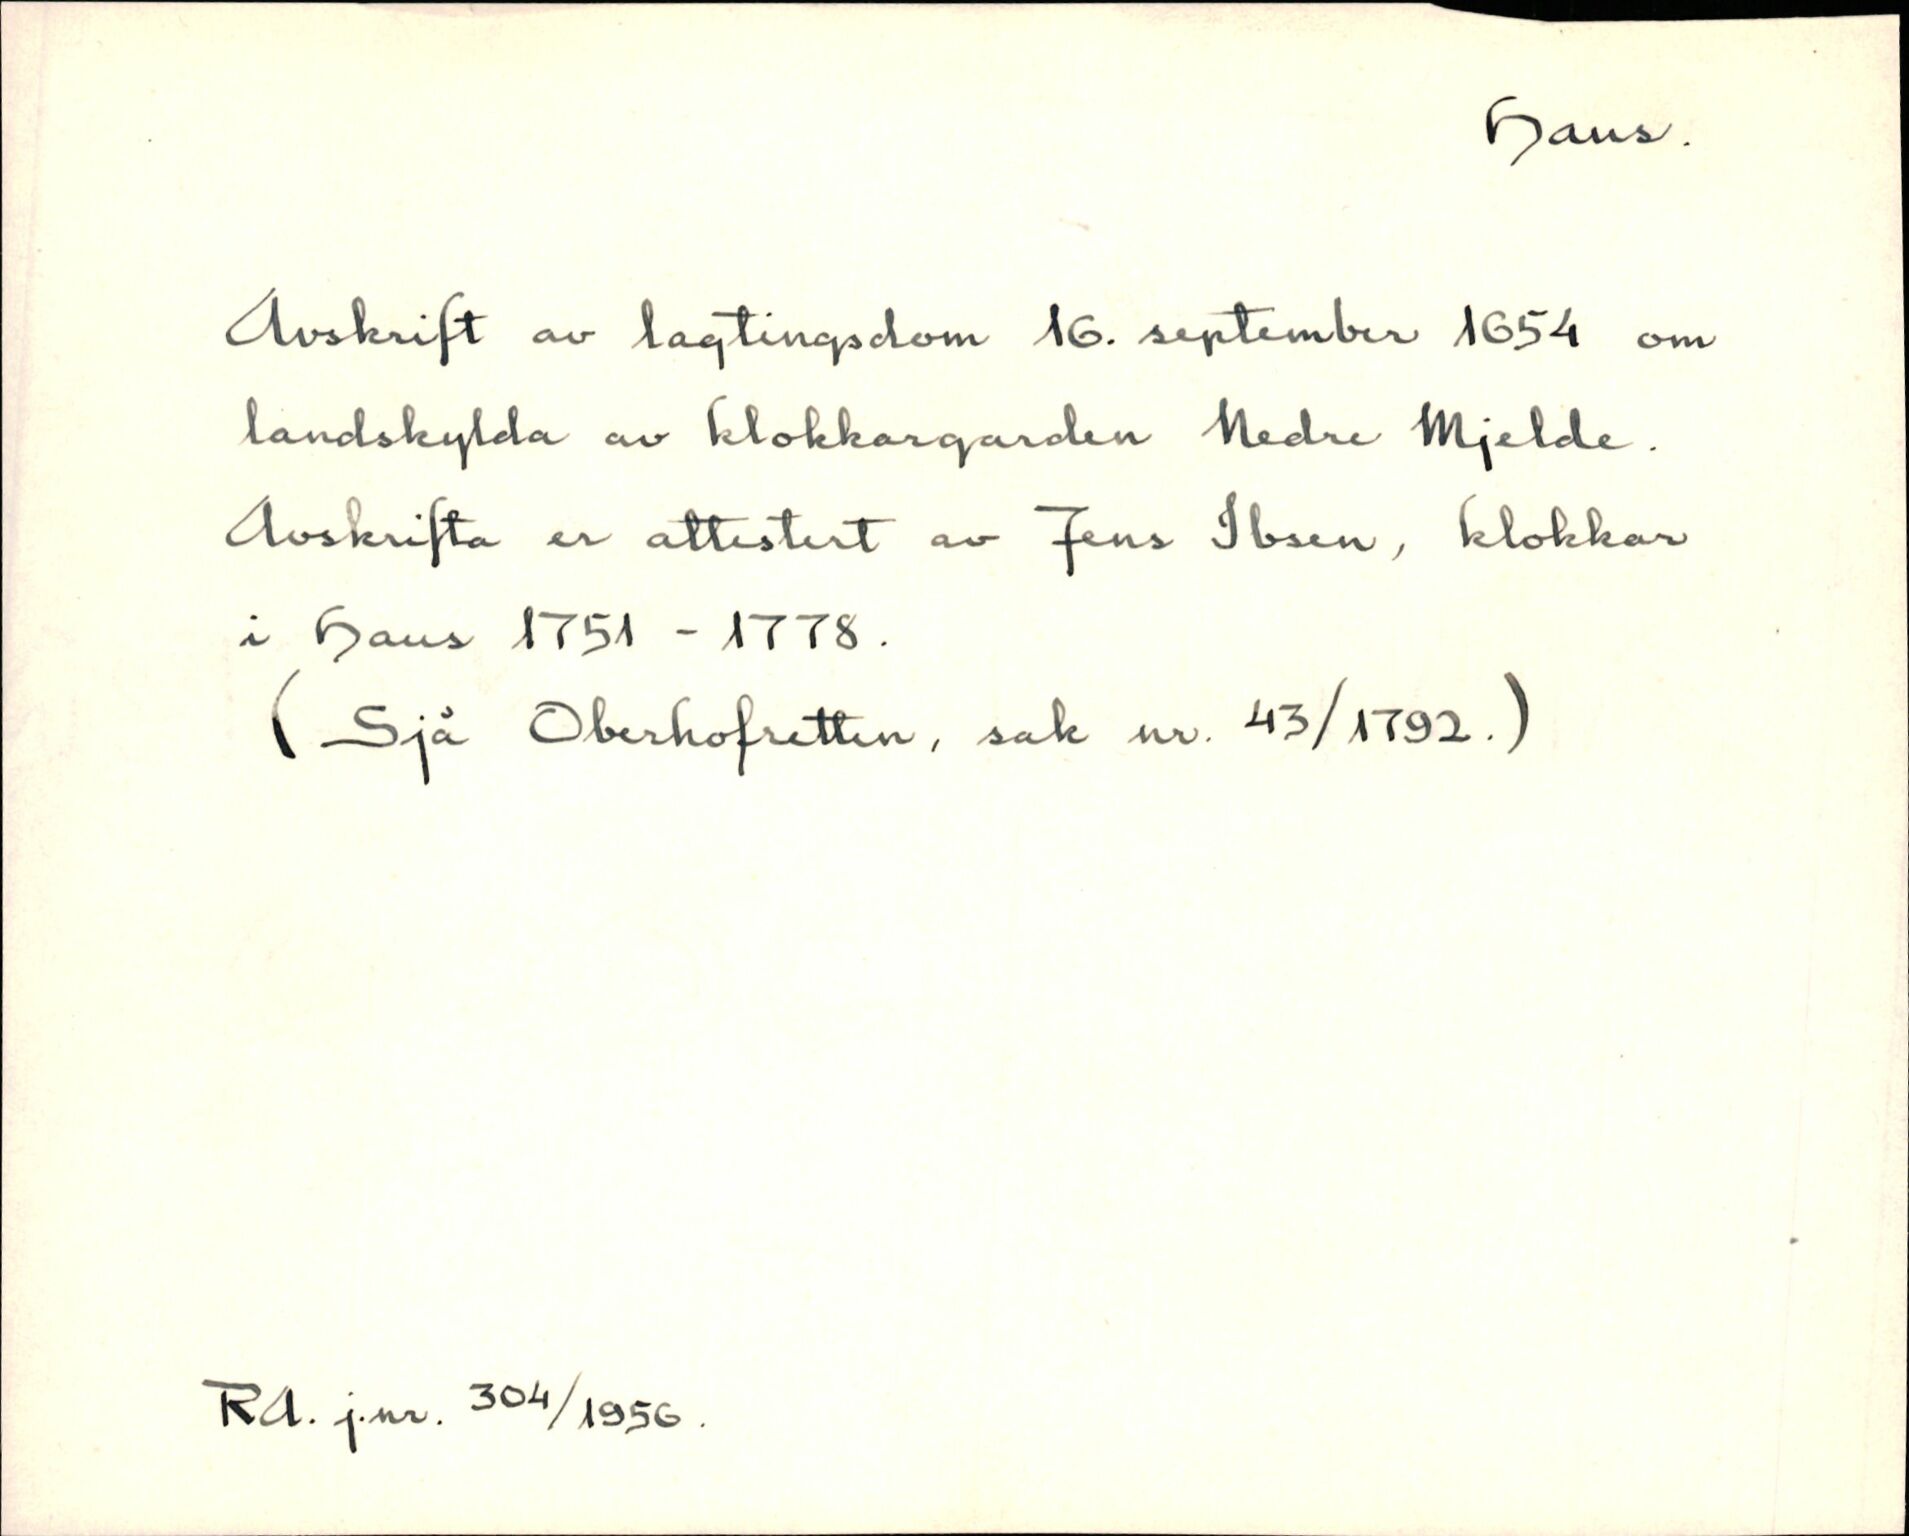 Haus.
Avskrift av lagtingsdom 16. september 1654 om
landskylda av klokkargarden Nedre Mjelde.
Avskrifta er attestert av Jens Ibsen, klokkar
i Haus 1751 - 1778.
(Sjå Oberhofretten, sak nr. 43/1792.)
RA. j.nr. 304/1956.